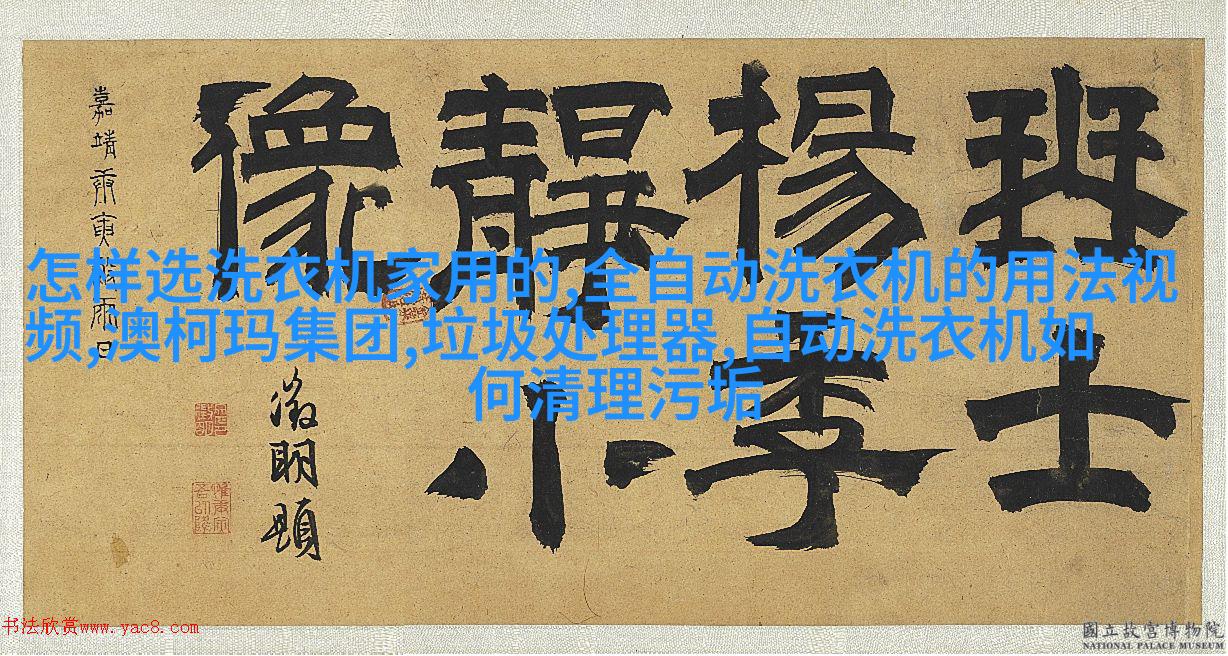 琴士
楊季
靜小
像
嘉靖庚寅雨日
徵明題
怎样选洗衣机家用的,全自动洗衣机的用法视
频,澳柯玛集团,垃圾处理器,自动洗衣机如
何清理污垢
书法欣赏www.yac8.com
國立故宮博物院
NATIONAL PALACE MUSEUM